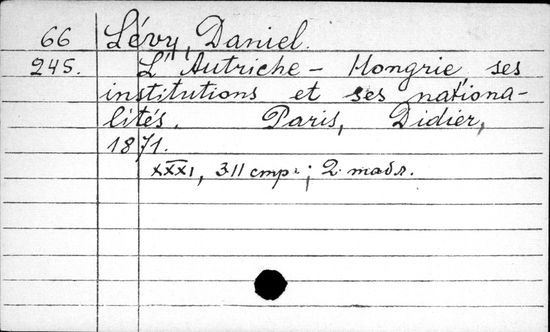 66 Lévy, Daniel.
245. L'Autriche - Hongrie ses
institutions et ses nationa-
lités. Paris, Didier,
1871.
XXXI, 311 стр.; 2 табл.